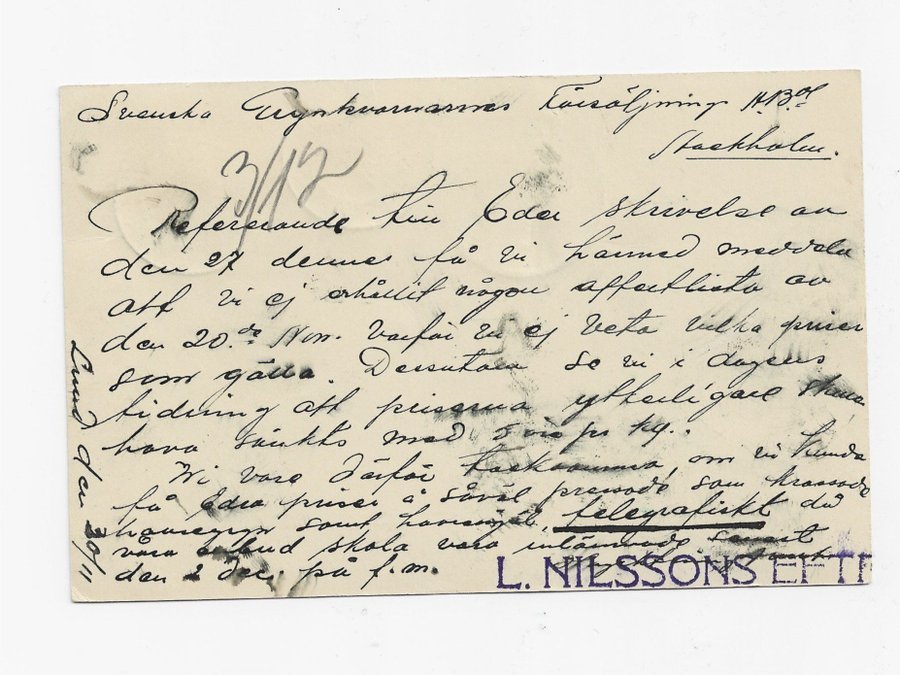 Svenska Grynkvarnarnes Försäljnings A.B.
Stockholm.
3/12
Refererande till Eder skrivelse av
den 27 dennes få vi härmed meddela
att vi ej erhållit någon offertlista av
den 20.de Nov. varför vi ej veta vilka priser
som gälla. Dessutom se vi i dagens
tidning att priserna ytterligare skulle
hava sänkts med 5 öre pr kg.
Vi vore därför tacksamma, om vi kunde
få Edra priser å såväl pressade som krossade
havregryn samt havremjöl telegrafiskt då
våra anbud skola vara inlämnade senast
den 2 dec. på f.m.
Lund den 30/11
L. NILSSONS EFTR